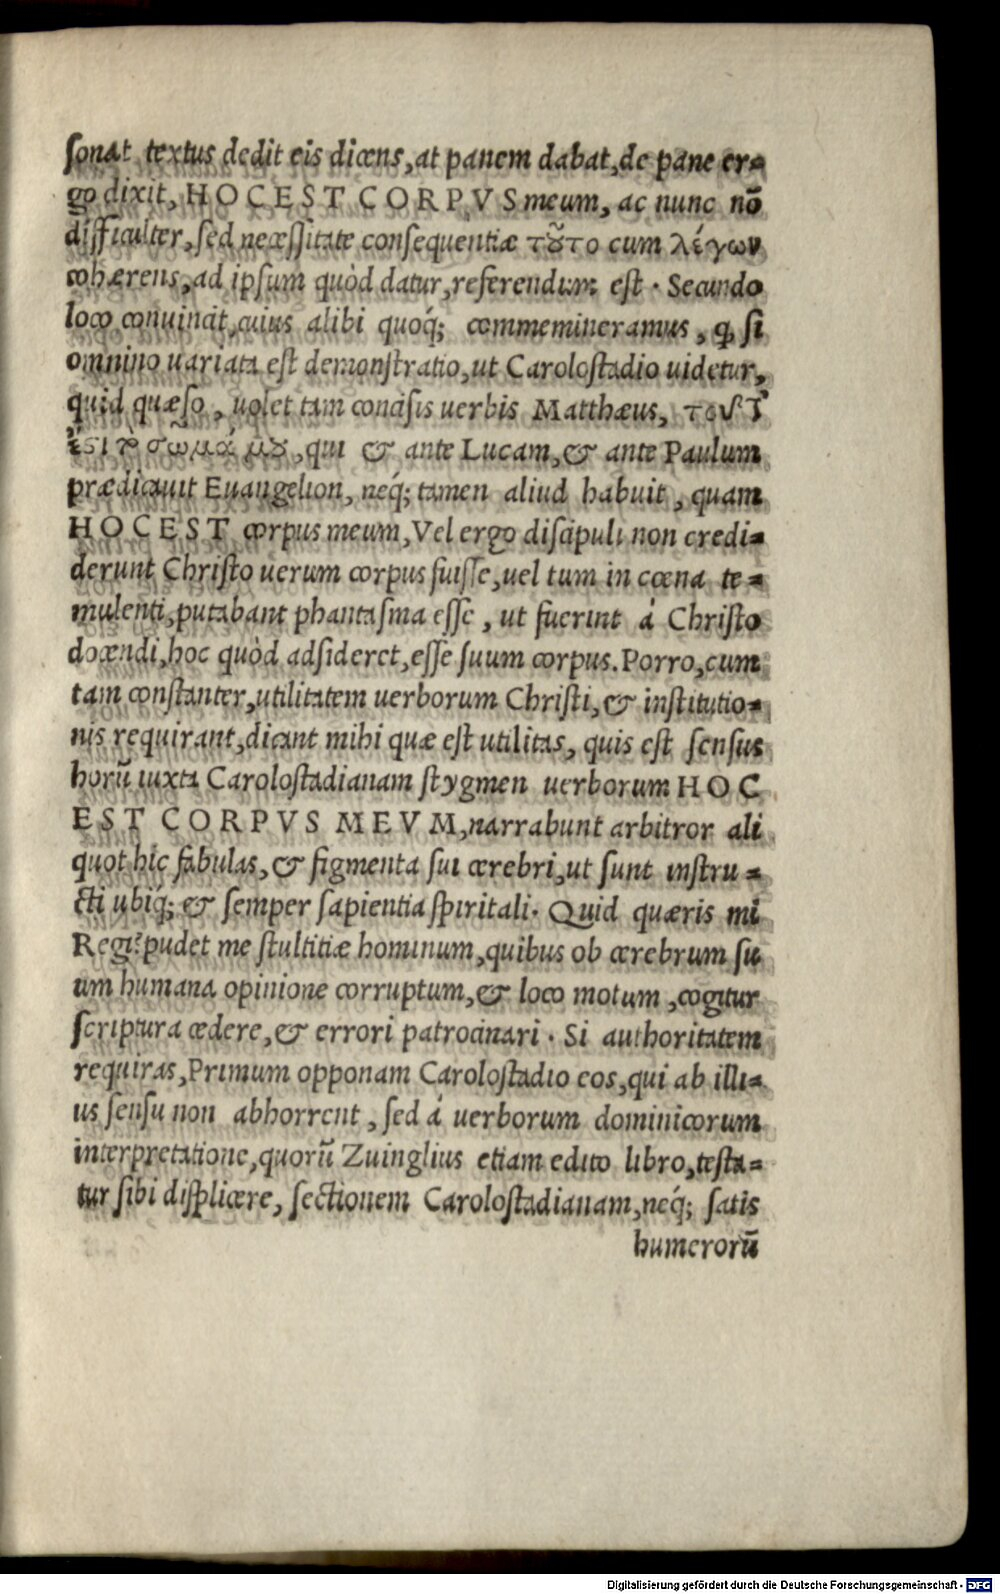 ſonat textus dedit eis dicens, at panem dabat, de pane er=
go dixit, HOC EST CORPVS meum, ac nunc nō
difficulter, ſed neceſſitate conſequentiæ τȣ̃το cum λέγων
cohærens, ad ipſum quòd datur, referendum eſt. Secundo
loco conuincit, cuius alibi quoq́; commemineramus, ꝙ ſi
omnino uariata eſt demonſtratio, ut Caroloſtadio uidetur,
quid quæſo, uolet tam conciſis uerbis Matthæus,
σῶμά μȣ, qui & ante Lucam, & ante Paulum
prædicauit Euangelion, neq́; tamen aliud habuit, quam
HOC EST corpus meum, Vel ergo diſcipuli non credi=
derunt Chriſto uerum corpus fuiſſe, uel tum in cœna te=
mulenti, putabant phantaſma eſſe, ut fuerint á Chriſto
docendi, hoc quòd adſideret, eſſe ſuum corpus. Porro, cum
tam conſtanter, utilitatem uerborum Chriſti, & inſtitutio=
nis requirant, dicant mihi quæ eſt utilitas, quis eſt ſenſus
horū iuxta Caroloſtadianam ſtygmen uerborum HOC
EST CORPVS MEVM, narrabunt arbitror ali
quot hic fabulas, & figmenta ſui cerebri, ut ſunt inſtru=
cti ubiq́; & ſemper ſapientia ſpiritali. Quid quæris mi
Regi? pudet me ſtultitiæ hominum, quibus ob cerebrum ſu
um humana opinione corruptum, & loco motum, cogitur
ſcriptura cedere, & errori patrocinari. Si authoritatem
requiras, Primum opponam Caroloſtadio eos, qui ab illi=
us ſenſu non abhorrent, ſed á uerborum dominicorum
interpretatione, quorū Zuinglius etiam edito libro, teſta=
tur ſibi diſplicere, ſectionem Caroloſtadianam, neq́; ſatis
humerorū
Digitalisierung gefördert durch die Deutsche Forschungsgemeinschaft - DFG